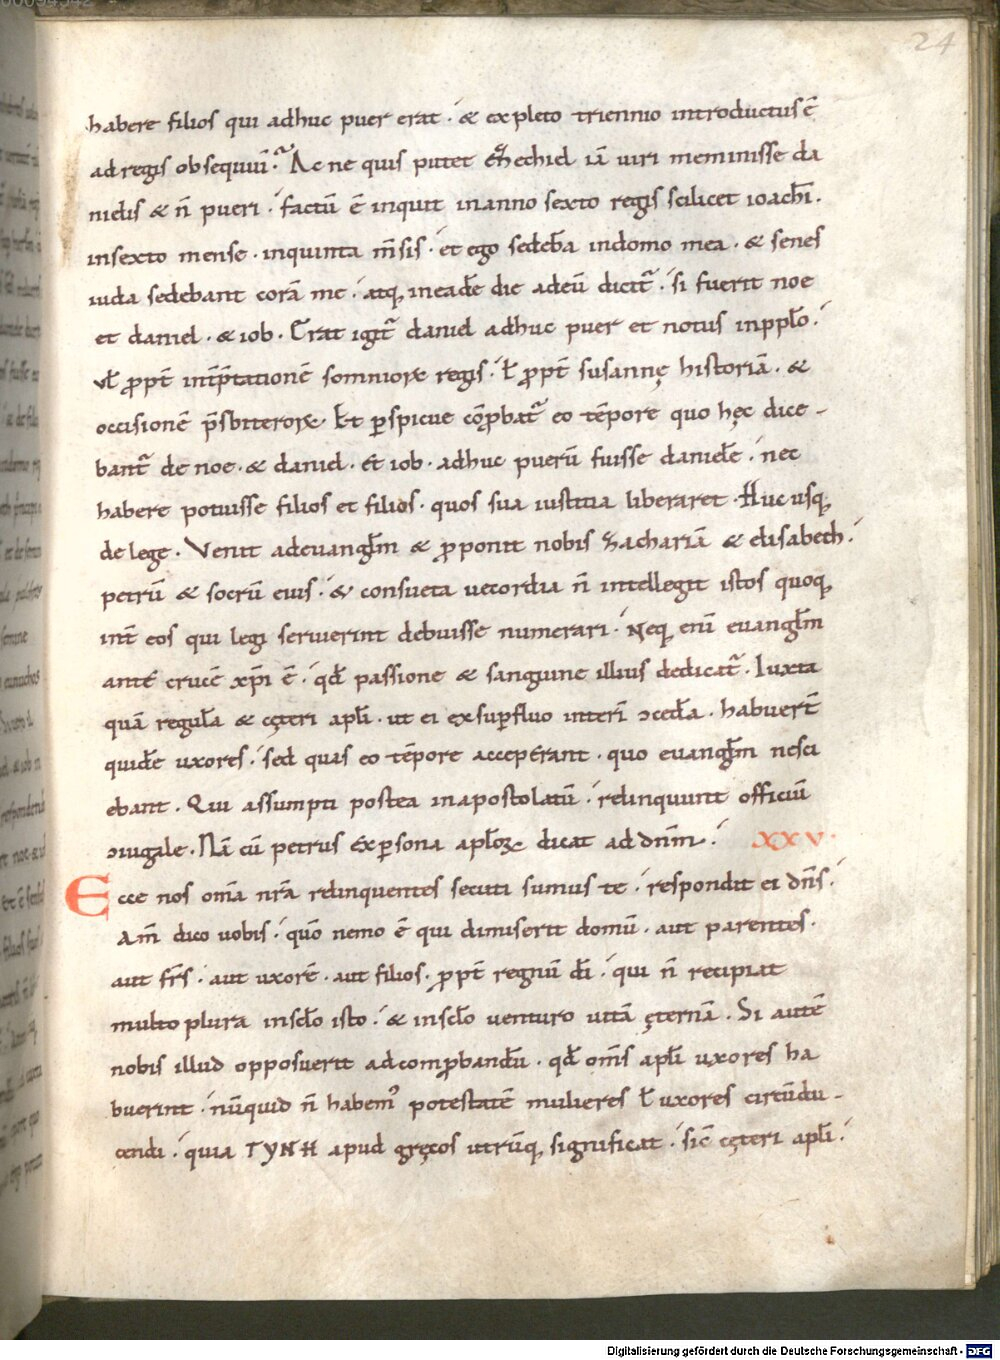 24
habere filios qui adhuc puer erat · & expleto triennio introductus ē
ad regis obsequiū · Ac ne quis putet ezechiel iā uiri meminisse da
nielis & n̄ pueri · factū ē inquit in anno sexto regis scilicet ioachī ·
in sexto mense · in quinta m̄sis · et ego sedeba̅ in domo mea · & senes
iuda sedebant corā me · atq; in eade̅ die ad eū dicit᷑ · si fuerit noe
et daniel · & iob · Erat igit᷑ daniel adhuc puer et notus in pplo̅ ·
ut̄ ꝓpt̄ int̄p̄tationē somnioꝝ regis · ł ꝓpt̄ susannę historiā · &
occisionē p̄sbiteroꝝ · Et ꝑspicue cōꝓbat᷑ eo tēpore quo hęc dice-
bant᷑ de noe · & daniel · Et iob · adhuc puerū fuisse daniele̅ · nec
habere potuisse filios et filios · quos sua iustitia liberaret · Huc usq;
de lege · Venit ad euangłm & ꝓponit nobis zachariā & elisabeth ·
petrū & socrū eius · & consueta uecordia n̄ intellegit istos quoq;
int̄ eos qui legi seruierint debuisse numerari · Neq; enī euangłm
ante crucē xp̄i ē · qd̄ passione & sanguine illius dedicat᷑ · Iuxta
quā regula̅ & cęteri apłi · ut ei ex suꝑfluo interī ɔceda̅ · habuer̄t
quide̅ uxores · sed quas eo tēpore acceperant · quo euangłm nesci
ebant · Qui assumpti postea in apostolatū · relinquunt officiū
ɔiugale · Nā cū petrus ex ꝑsona apłoꝝ dicat ad dn̄m · XXV ·
Ecce nos om̄a nr̄a relinquentes secuti sumus te · respondit ei dn̄s ·
Am̄ dico uobis · quo̅ nemo ē qui dimiserit domū · aut parentes ·
aut fr̄s · aut uxorē · aut filios · ꝓpt̄ regnū dī · qui n̄ recipiat
multo plura in scło isto · & in scło uenturo uitā ęternā · Si autē
nobis illud opposuerit ad comꝓbandu̅ · qd̄ om̄s apłi uxores ha
buerint · nūquid n̄ habem᷒ potestatē mulieres ł uxores circūdu-
cendi · quia ΓΥΝΗ apud gręcos utrūq; significat · sic̄ cęteri apłi ·
Digitalisierung gefördert durch die Deutsche Forschungsgemeinschaft - DFG